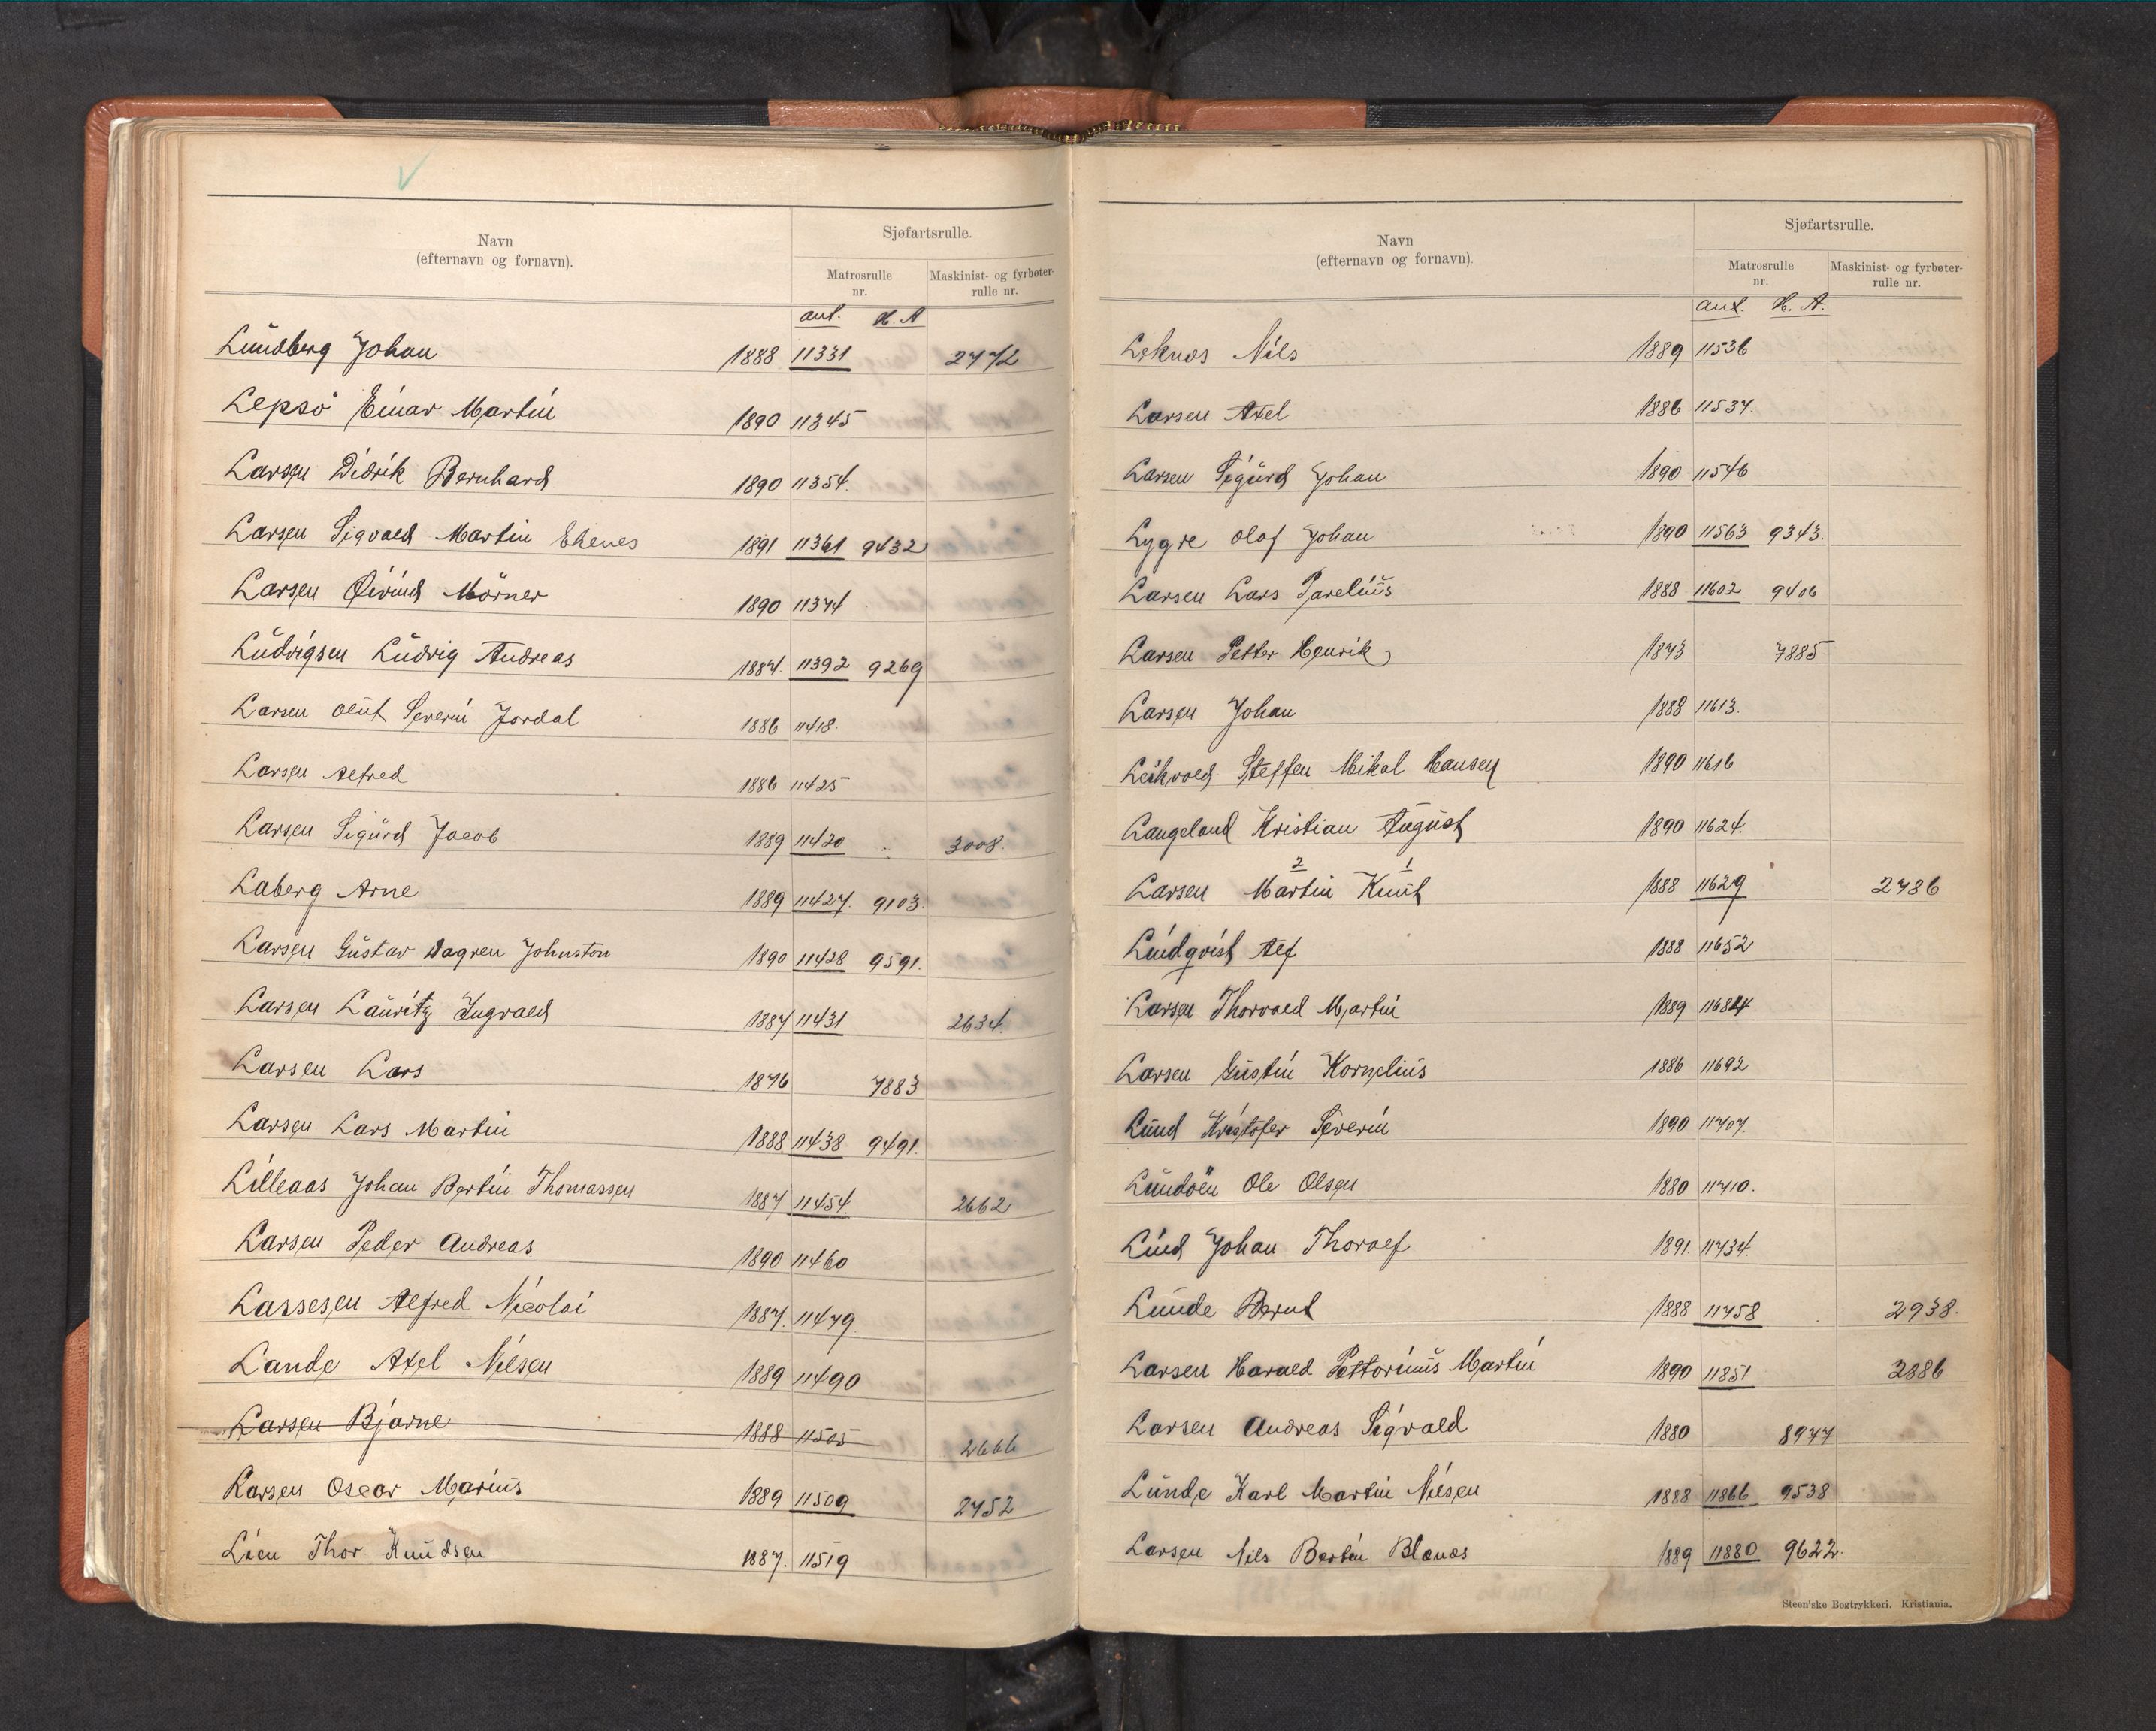 Navn
(efternavn og fornavn).
Sjøfartsrulle.
Matrosrulle nr.
Maskinist- og fyrbøter-rulle nr.
ant. H. A
Lundberg Johan 1888 11331 2772
Lepsö Einar Martin 1890 11345
Larsen Didrik Bernhard 1890 11354.
Larsen Sigvald Martin Ekenes 1891 11361 9432
Larsen Öivind Mörner 1890 11374
Ludvigsen Ludvig Andreas 1887. 11392 9269
Larsen Olut Severin Jordal 1886 11418.
Larsen Alfred 1886 11425
Larsen Sigurd Jacob 1889 11420 3008.
Laberg Arne 1889 11427. 9103.
Larsen Gustav Dagren Johnston 1890 11428 9591.
Larsen Lauritz Ingvald 1887 11431 2634.
Larsen Lars 1876 7883
Larsen Lars Martin 1888 11438 9491.
Lilleaas Johan Bertin Thomassen 1887 11454. 2662
Larsen Peder Andreas 1890 11460
Lassesen Alfred Nicolai 1887. 11479
Lande Axel Nilsen 1889 11490
Larsen Bjarne 1888 11505 2666
Larsen Oscar Marius 1889 11509 2752
Lien Thor Knudsen 1887. 11519
Navn
(efternavn og fornavn).
Sjøfartsrulle.
Matrosrulle nr.
Maskinist- og fyrbøter-rulle nr.
ant. H. A.
Leknes Nils 1889 11536
Larsen Axel 1886 11537.
Larsen Sigurd Johan 1890 11546
Lygre Olaf Johan 1890 11563 9343.
Larsen Lars Parelius 1888 11602 9406
Larsen Petter Henrik 1873 7885
Larsen Johan 1888 11613.
Leikvold Steffen Mikal Hansen 1890 11616
Langeland Kristian August 1890 11624.
2 1
Larsen Martin Knut 1888 11629 2786
Lindqvist Alf 1888 11652
Larsen Thorvald Martin 1889 11684
Larsen Gustin Kornelius 1886 11692
Lund Kristofer Severin 1890 11707.
Lundöen Ole Olsen 1880 11710.
Lind Johan Thoralf 1891. 11734.
Lunde Bernt 1888 11758 2938.
Larsen Harald Pettorinus Martin 1890 11851 2886
Larsen Andreas Sigvald 1880 8977
Lunde Karl Martin Nilsen 1888 11866 9538
Larsen Nils Bertin Blænes 1889 11880 9622.
Steen'ske Bogtrykkeri. Kristiania.